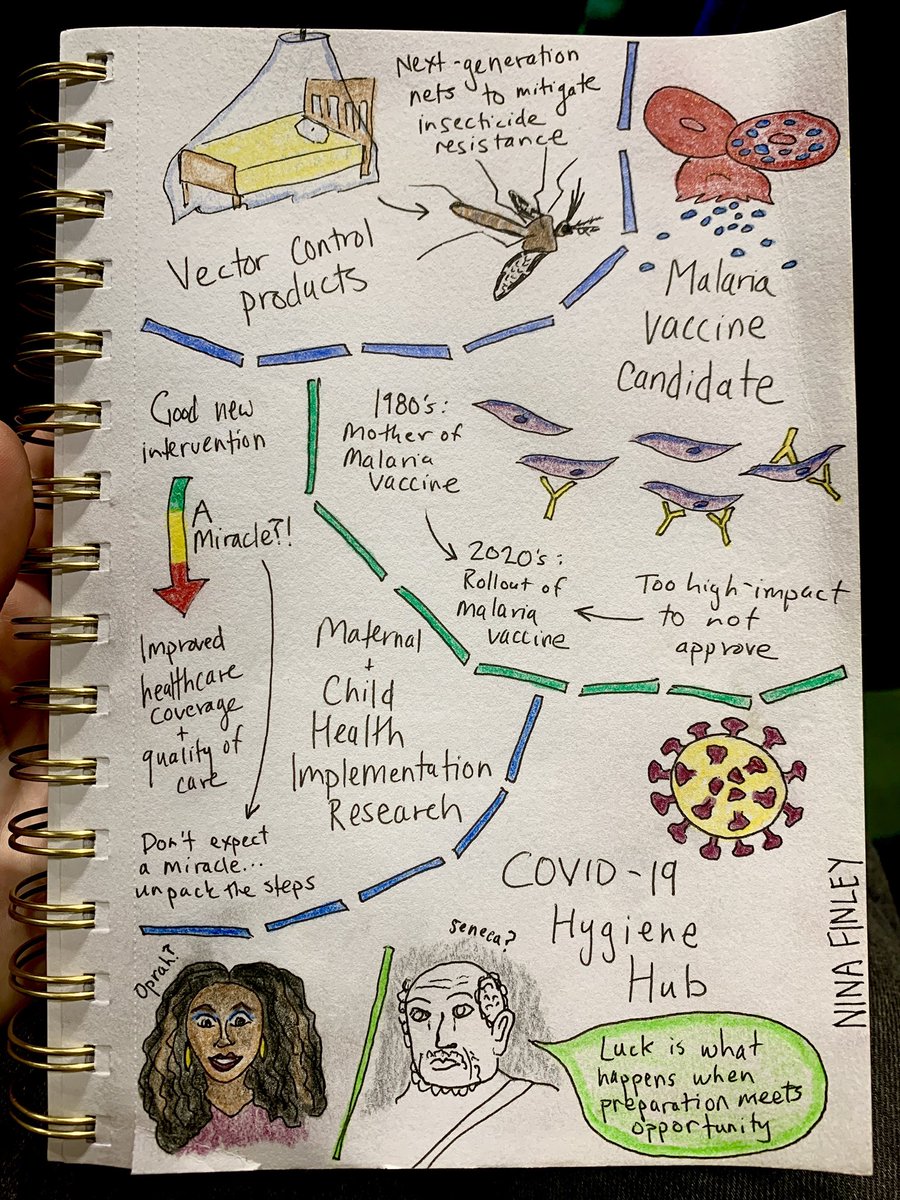 Next-generation
nets to mitigate
insecticide
resistance
Vector Control
products
Malaria
Vaccine
Candidate
Good new
intervention
A
Miracle?!
Improved
healthcare
coverage
+
quality of
care
Don't expect
a miracle...
unpack the steps
1980's:
Mother of
Malaria
Vaccine
2020's:
Rollout of
malaria
vaccine
Too high-impact
to not
approve
Maternal
+
Child
Health
Implementation
Research
COVID-19
Hygiene
Hub
NINA FINLEY
Oprah?
Seneca?
Luck is what
happens when
preparation meets
opportunity